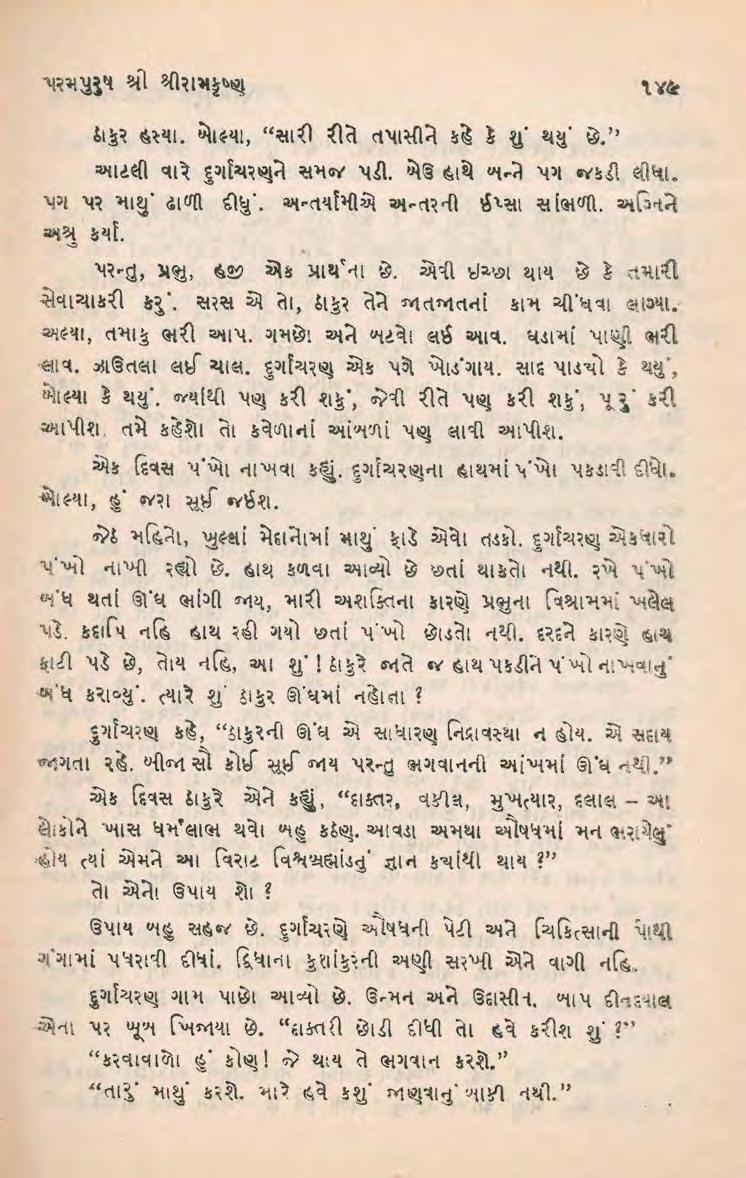 પરમપુરુષ શ્રી શ્રીરામકૃષ્ણ ૧૪૯
ઠાકુર હસ્યા. બોલ્યા, “સારી રીતે તપાસીને કહે કે શું થયું છે.”
આટલી વારે દુર્ગાચરણને સમજ પડી. બેઉ હાથે બન્ને પગ જકડી લીધા.
પગ પર માથું ઢાળી દીધું. અન્તર્યામીએ અન્તરની ઈપ્સા સાંભળી. અગ્નિને
અશ્રુ કર્યાં.
પરન્તુ, પ્રભુ, હજી એક પ્રાર્થના છે. એવી ઇચ્છા થાય છે કે તમારી
સેવાચાકરી કરું. સરસ એ તો, ઠાકુર તેને જાતજાતનાં કામ ચીંધવા લાગ્યા.
અલ્યા, તમાકુ ભરી આપ. ગમછો અને બટવો લઈ આવ. ઘડામાં પાણી ભરી
લાવ. ઝાઉતલા લઈ ચાલ. દુર્ગાચરણ એક પગે ખોડંગાય. સાદ પાડયો કે થયું,
બોલ્યા કે થયું. જ્યાંથી પણ કરી શકું, જેવી રીતે પણ કરી શકું, પૂરું કરી
આપીશ. તમે કહેશો તો કવેળાનાં આંબળાં પણ લાવી આપીશ.
એક દિવસ પંખો નાખવા કહ્યું. દુર્ગાચરણના હાથમાં પંખો પકડાવી દીધો.
બોલ્યા, હું જરા સૂઈ જઈશ.
જેઠ મહિનો, ખુલ્લાં મેદાનોમાં માથું ફાડે એવો તડકો. દુર્ગાચરણ એકધારો
પંખો નાખી રહ્યો છે. હાથ કળવા આવ્યો છે છતાં થાકતો નથી. રખે પંખો
બંધ થતાં ઊંઘ ભાંગી જાય, મારી અશક્તિના કારણે પ્રભુના વિશ્રામમાં ખલેલ
પડે. કદાપિ નહિ હાથ રહી ગયો છતાં પંખો છોડતો નથી. દરદને કારણે હાથ
ફાટી પડે છે, તોય નહિ, આ શું! ઠાકુરે જાતે જ હાથ પકડીને પંખો નાખવાનું
બંધ કરાવ્યું. ત્યારે શું ઠાકુર ઊંઘમાં નહોતા ?
દુર્ગાચરણ કહે, “ઠાકુરની ઊંઘ એ સાધારણ નિદ્રાવસ્થા ન હોય. એ સદાય
જાગતા રહે. બીજા સૌ કોઈ સૂઈ જાય પરન્તુ ભગવાનની આંખમાં ઊંઘ નથી.”
એક દિવસ ઠાકુરે એને કહ્યું, “દાક્તર, વકીલ, મુખત્યાર, દલાલ – આ
લોકોને ખાસ ધર્મલાભ થવો બહુ કઠણ. આવડા અમથા ઔષધમાં મન ભરાયેલું
હોય ત્યાં એમને આ વિરાટ વિશ્વબ્રહ્માંડનું જ્ઞાન કયાંથી થાય ?”
તો એનો ઉપાય શો ?
ઉપાય બહુ સહજ છે. દુર્ગાચરણે ઔષધની પેટી અને ચિકિત્સાની પોથી
ગંગામાં પધરાવી દીધાં. દ્વિધાના કુશાંકુરની અણી સરખી એને વાગી નહિ.
દુર્ગાચરણ ગામ પાછો આવ્યો છે. ઉન્મન અને ઉદાસીન. બાપ દીનદયાલ
એના પર ખૂબ ખિજાયા છે. “દાક્તરી છોડી દીધી તો હવે કરીશ શું ?”
“કરવાવાળો હું કોણ! જે થાય તે ભગવાન કરશે.”
“તારું માથું કરશે. મારે હવે કશું જાણવાનું બાકી નથી.”